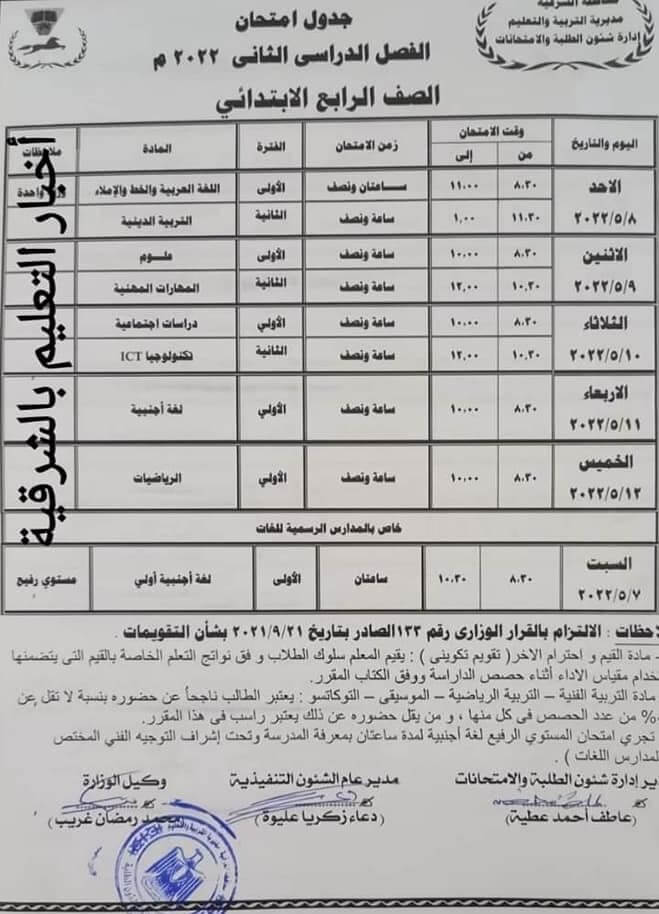 جدول امتحان
الفصل الدراسى الثانى ٢٠٢٢ م
الصف الرابع الابتدائي
مديرية التربية والتعليم
إدارة شئون الطلبة والامتحانات
اليوم والتاريخ وقت الامتحان زمن الامتحان الفترة المادة ملاحظات
من إلى
الاحد ٨.٣٠ ١١.٠٠ ســاعتان ونصف الأولى اللغة العربية والخط والإملاء ورقة واحدة
٢٠٢٢/٥/٨ ١١.٣٠ ١.٠٠ ساعة ونصف الثانية التربية الدينية
الاثنين ٨.٣٠ ١٠.٠٠ ساعة ونصف الأولى علــوم
٢٠٢٢/٥/٩ ١٠.٣٠ ١٢.٠٠ ساعة ونصف الثانية المهارات المهنية
الثلاثاء ٨.٣٠ ١٠.٠٠ ساعة ونصف الأولي دراسات اجتماعية
٢٠٢٢/٥/١٠ ١٠.٣٠ ١٢.٠٠ ساعة ونصف الثانية تكنولوجيا ICT
الاربعاء ٨.٣٠ ١٠.٠٠ ساعة ونصف الأولي لغة أجنبية
٢٠٢٢/٥/١١
الخميس ٨.٣٠ ١٠.٠٠ ساعة ونصف الأولي الرياضيات
٢٠٢٢/٥/١٢
خاص بالمدارس الرسمية للغات
السبت ٨.٣٠ ١٠.٣٠ ساعتان الأولى لغة أجنبية أولي مستوي رفيع
٢٠٢٢/٥/٧
لاحظات : الالتزام بالقرار الوزارى رقم ١٣٣الصادر بتاريخ ٢٠٢١/٩/٢١ بشأن التقويمات .
- مادة القيم و احترام الاخر( تقويم تكوينى ) : يقيم المعلم سلوك الطلاب و فق نواتج التعلم الخاصة بالقيم التى يتضمنها
خدام مقياس الاداء أثناء حصص الدراسة ووفق الكتاب المقرر.
مادة التربية الفنية – التربية الرياضية – الموسيقى – التوكاتسو : يعتبر الطالب ناجحاً عن حضوره بنسبة لا تقل عن
% من عدد الحصص فى كل منها ، و من يقل حضوره عن ذلك يعتبر راسب فى هذا المقرر.
تجري امتحان المستوي الرفيع لغة أجنبية لمدة ساعتان بمعرفة المدرسة وتحت إشراف التوجيه الفني المختص
لمدارس اللغات ) .
ير إدارة شئون الطلبة والامتحانات مدير عام الشئون التنفيذية وكيل الوزارة
(عاطف أحمد عطية) ( دعاء زكريا عليوة ) (محمد رمضان غريب )
أخبار التعليم بالشرقية